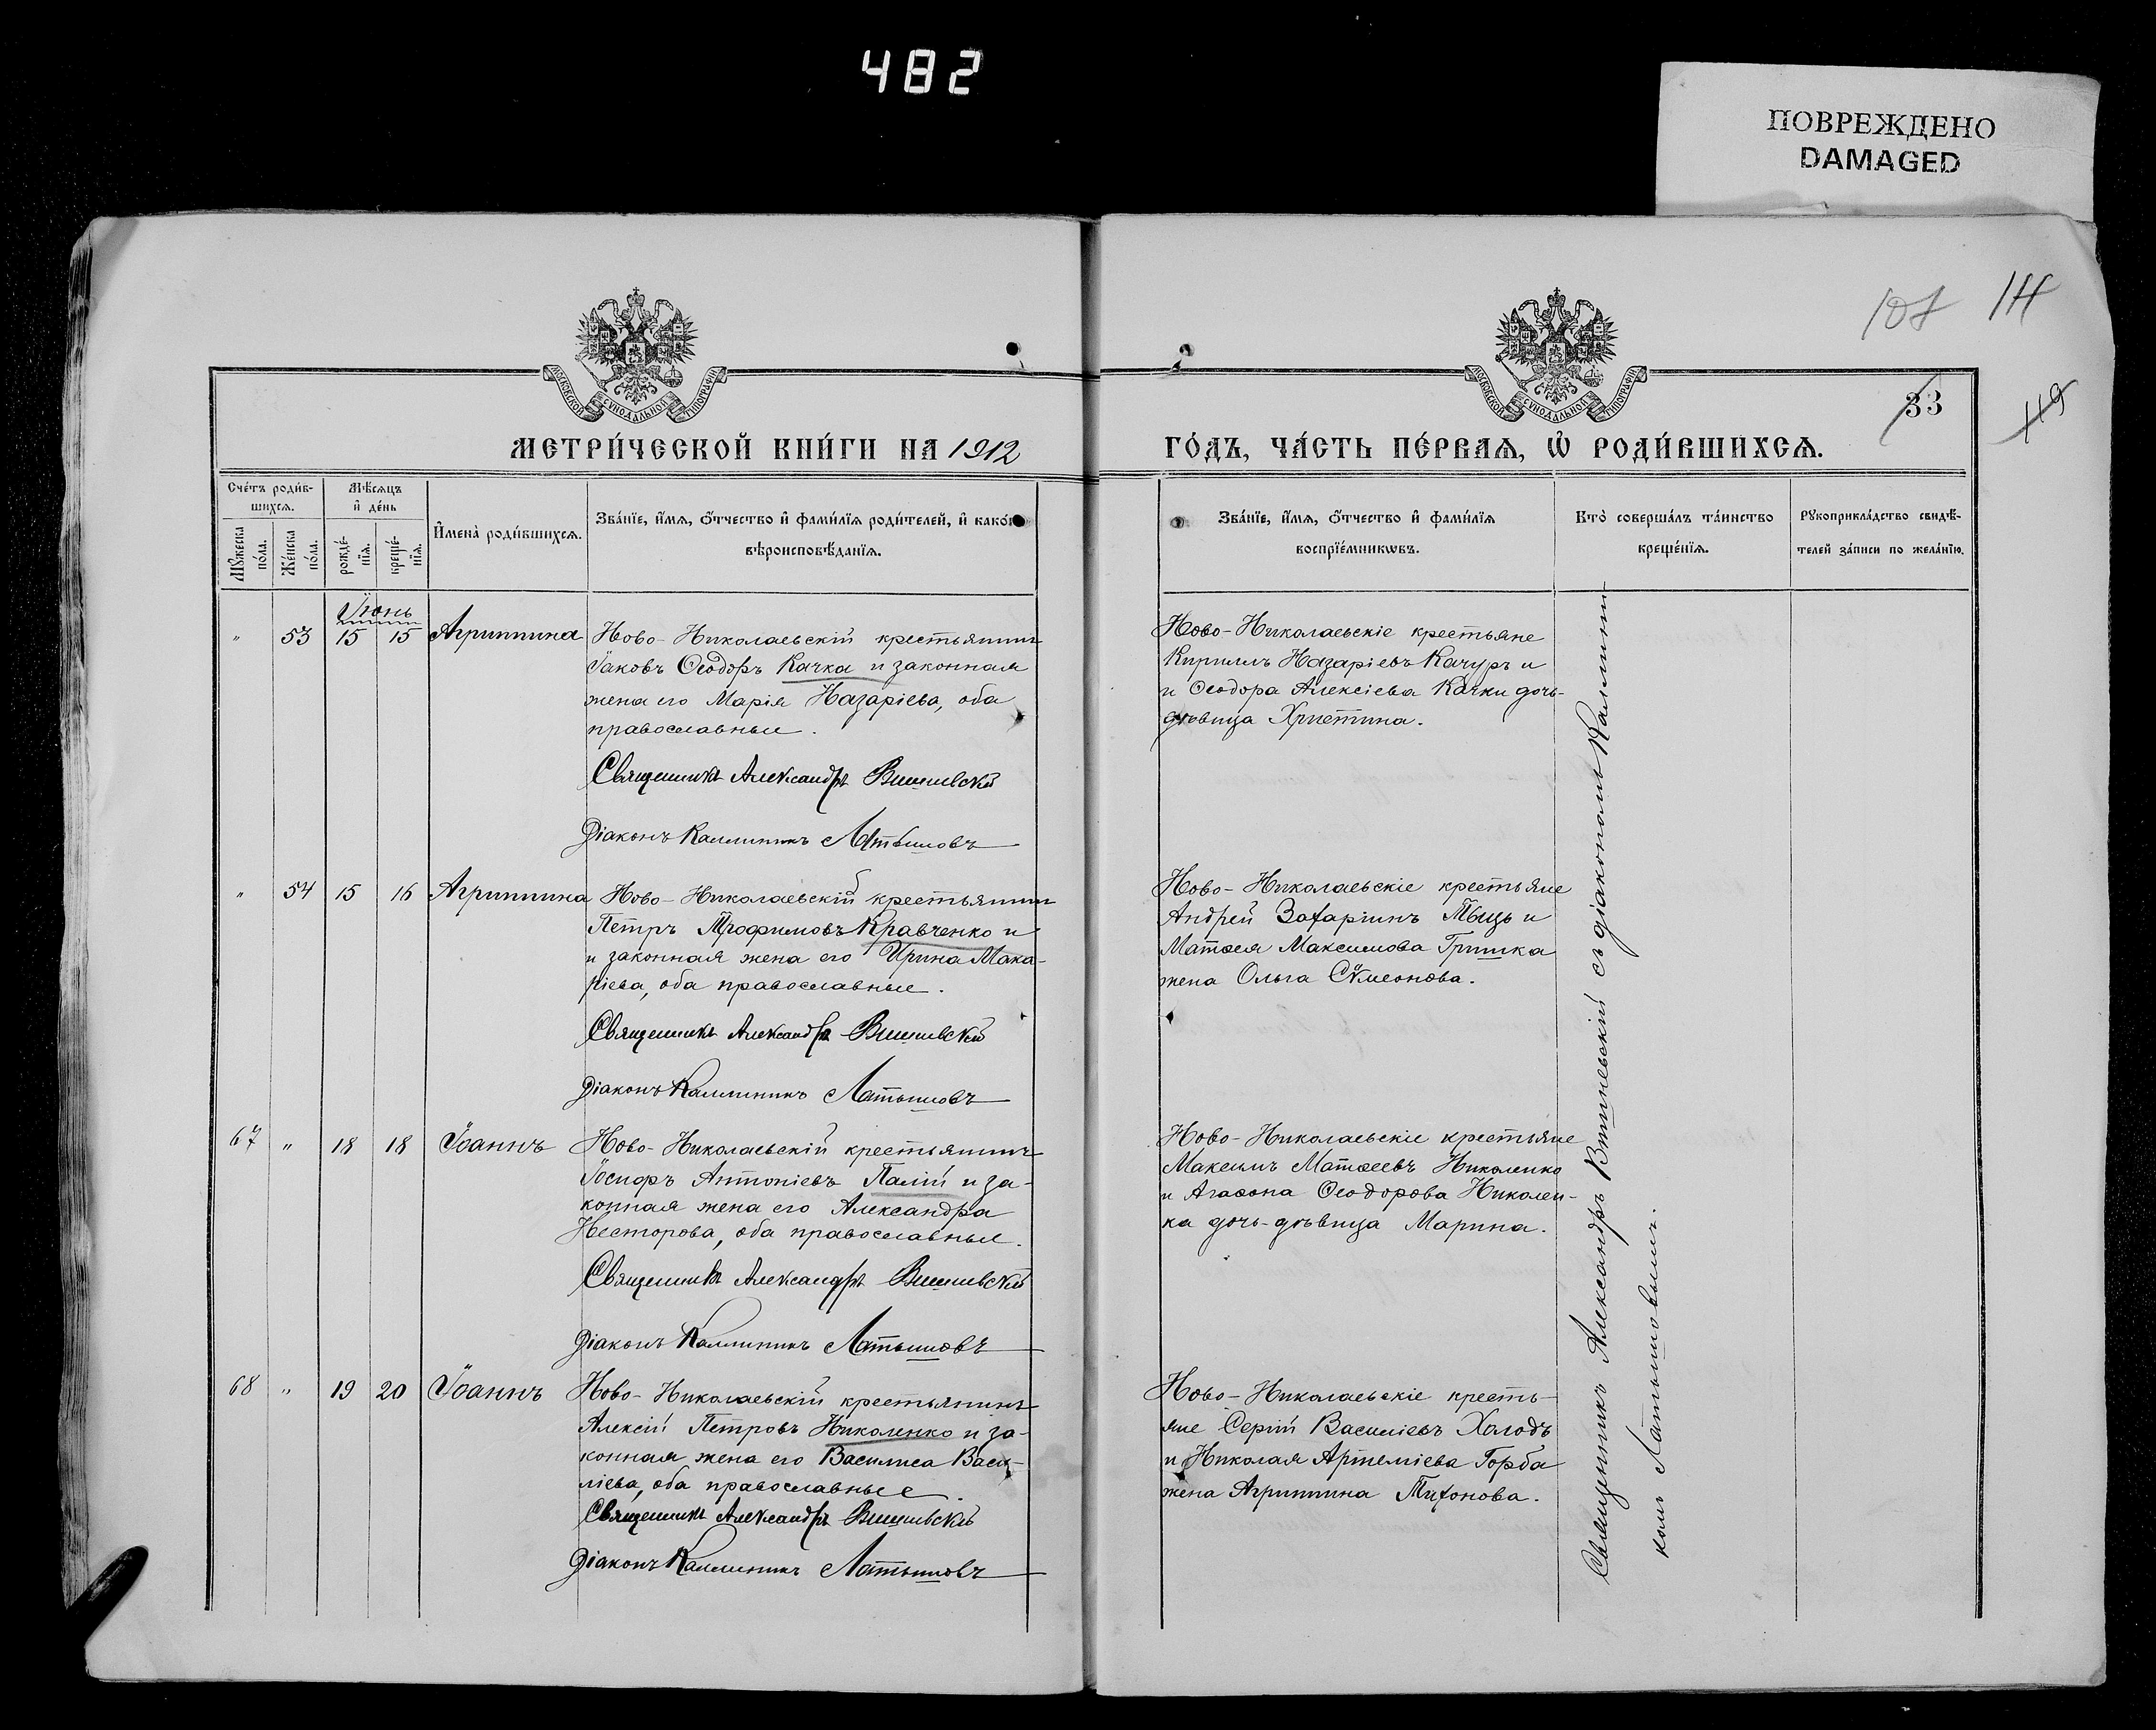 482
ПОВРЕЖДЕНО
DAMAGED
107 114
МОСКОВСКОЙ СѴНОДАЛЬНОЙ ТИПОГРАФІИ
МОСКОВСКОЙ СѴНОДАЛЬНОЙ ТИПОГРАФІИ
33
119
МЕТРИ́ЧЕСКОЙ КНИ́ГИ НА 1912
ГО́ДЪ, ЧА́СТЬ ПЕ́РВАѦ, Ѡ҆ РОДИ́ВШИХСѦ.
Сче́тъ роди́в-
шихсѧ.
Мꙋжеска
по́ла.
Же́нска
по́ла.
Мѣ́сѧцъ
и҆ де́нь
рожде́-
нїѧ.
креще́-
нїѧ.
И҆мена̀ роди́вшихсѧ.
Зва́нїе, и҆́мѧ, ѻ҆́тчество и҆ фами́лїѧ роди́телей, и҆ како́гѡ
вѣроисповѣ́данїѧ.
Зва́нїе, и҆́мѧ, ѻ҆́тчество и҆ фами́лїѧ
воспрїе́мникѡвъ.
Кто̀ соверша́лъ та́инство
креще́нїѧ.
Рꙋкоприкла́дство свидѣ́-
телей за́писи по жела́нїю.
Іюнь
" 53 15 15 Агриппина
Ново-Николаевскій крестьянинъ
Іаковъ Ѳеодоръ Качка и законная
жена его Марія Назаріева, оба
православные.
Священникъ Александръ Вишневскій
Діаконъ Каллиникъ Латышовъ
Ново-Николаевскіе крестьяне
Кириллъ Назаріевъ Качуръ и
и Ѳеодора Алексіева Качки дочь-
дѣвица Христина.
" 54 15 16 Агриппина
Ново-Николаевскій крестьянинъ
Петръ Трофимовъ Кравченко и
и законная жена его Ирина Мака-
ріева, оба православные.
Священникъ Александръ Вишневскій
Діаконъ Каллиникъ Латышовъ
Ново-Николаевскіе крестьяне
Андрей Захаріинъ и
Матѳея Максимова Гришка
жена Ольга Сѵмеонова.
67 " 18 18 Іоаннъ
Ново-Николаевскій крестьянинъ
Іосифъ Антоніевъ Палій и за-
конная жена его Александра
Несторова, оба православные.
Священникъ Александръ Вишневскій
Діаконъ Каллиникъ Латышовъ
Ново-Николаевскіе крестьяне
Максимъ Матѳеевъ Николенко
и Агаѳона Ѳеодорова Николен-
ка дочь-дѣвица Марина.
68 " 19 20 Іоаннъ
Ново-Николаевскій крестьянинъ
Алексій Петровъ Николенко и за-
конная жена его Василиса Васи-
ліева, оба православные.
Священникъ Александръ Вишневскій
Діаконъ Каллиникъ Латышовъ
Ново-Николаевскіе кресть-
яне Сергій Василіевъ Холодъ
и Николая Артеміева Горба
жена Агриппина Тихонова.
Священникъ Александръ Вишневскій съ діакономъ Каллини-
комъ Латышовымъ.